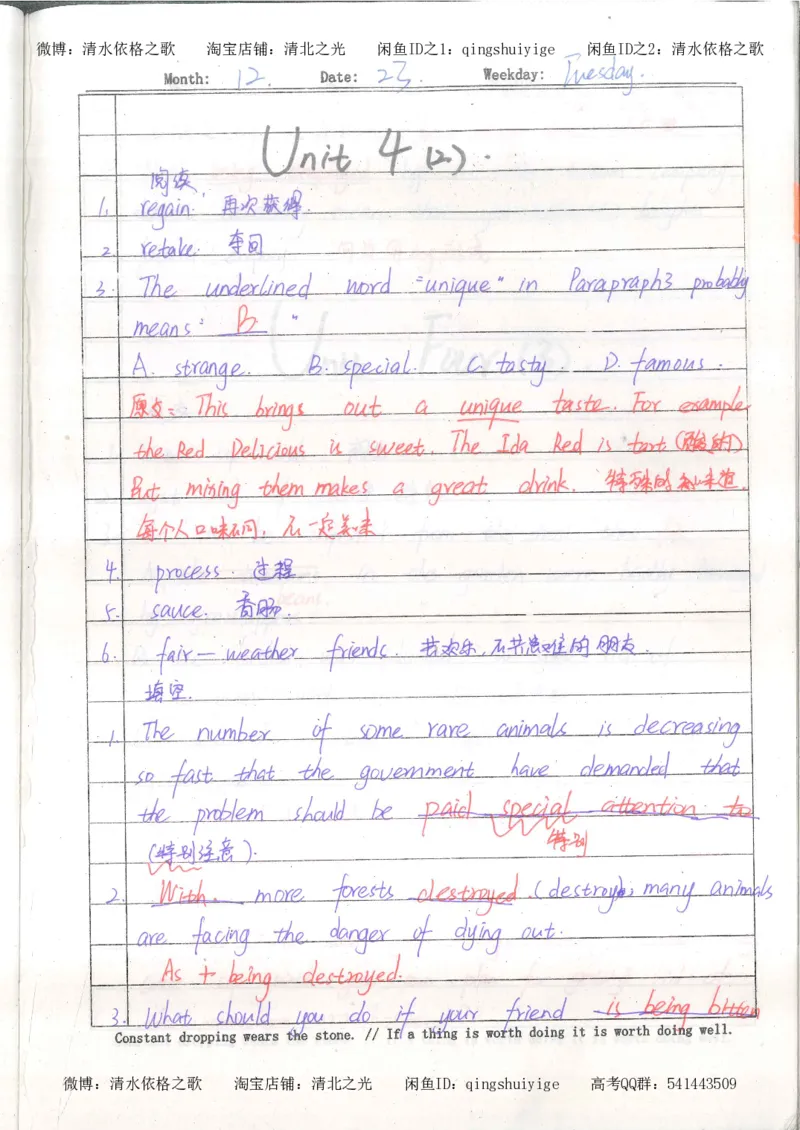 微博：清水依格之歌 淘宝店铺：清北之光 闲鱼ID之1：qingshuiyige 闲鱼ID之2：清水依格之歌
Month: 12. Date: 23. Weekday: Tuesday.
Unit 4 (2).
阅读
1. regain. 再次获得.
2. retake. 夺回
3. The underlined word "unique" in Parapraph3 probably
means: B "
A. strange. B. special. C. tasty. D. famous.
原文: This brings out a unique taste. For example
the Red Delicious is sweet. The Ida Red is tart (酸的)
But mixing them makes a great drink. 特殊的味道.
每个人口味不同, 不一定美味
4. process. 过程
5. sauce. 香肠.
6. fair-weather friends. 共欢乐, 不共患难的朋友.
填空.
1. The number of some rare animals is decreasing
so fast that the government have demanded that
the problem should be paid special attention to
特别
(特别注意).
2. With more forests destroyed (destroy), many animals
are facing the danger of dying out.
As + being destroyed.
3. What should you do if your friend is being bitten
Constant dropping wears the stone. // If a thing is worth doing it is worth doing well.
微博：清水依格之歌 淘宝店铺：清北之光 闲鱼ID：qingshuiyige 高考QQ群：541443509